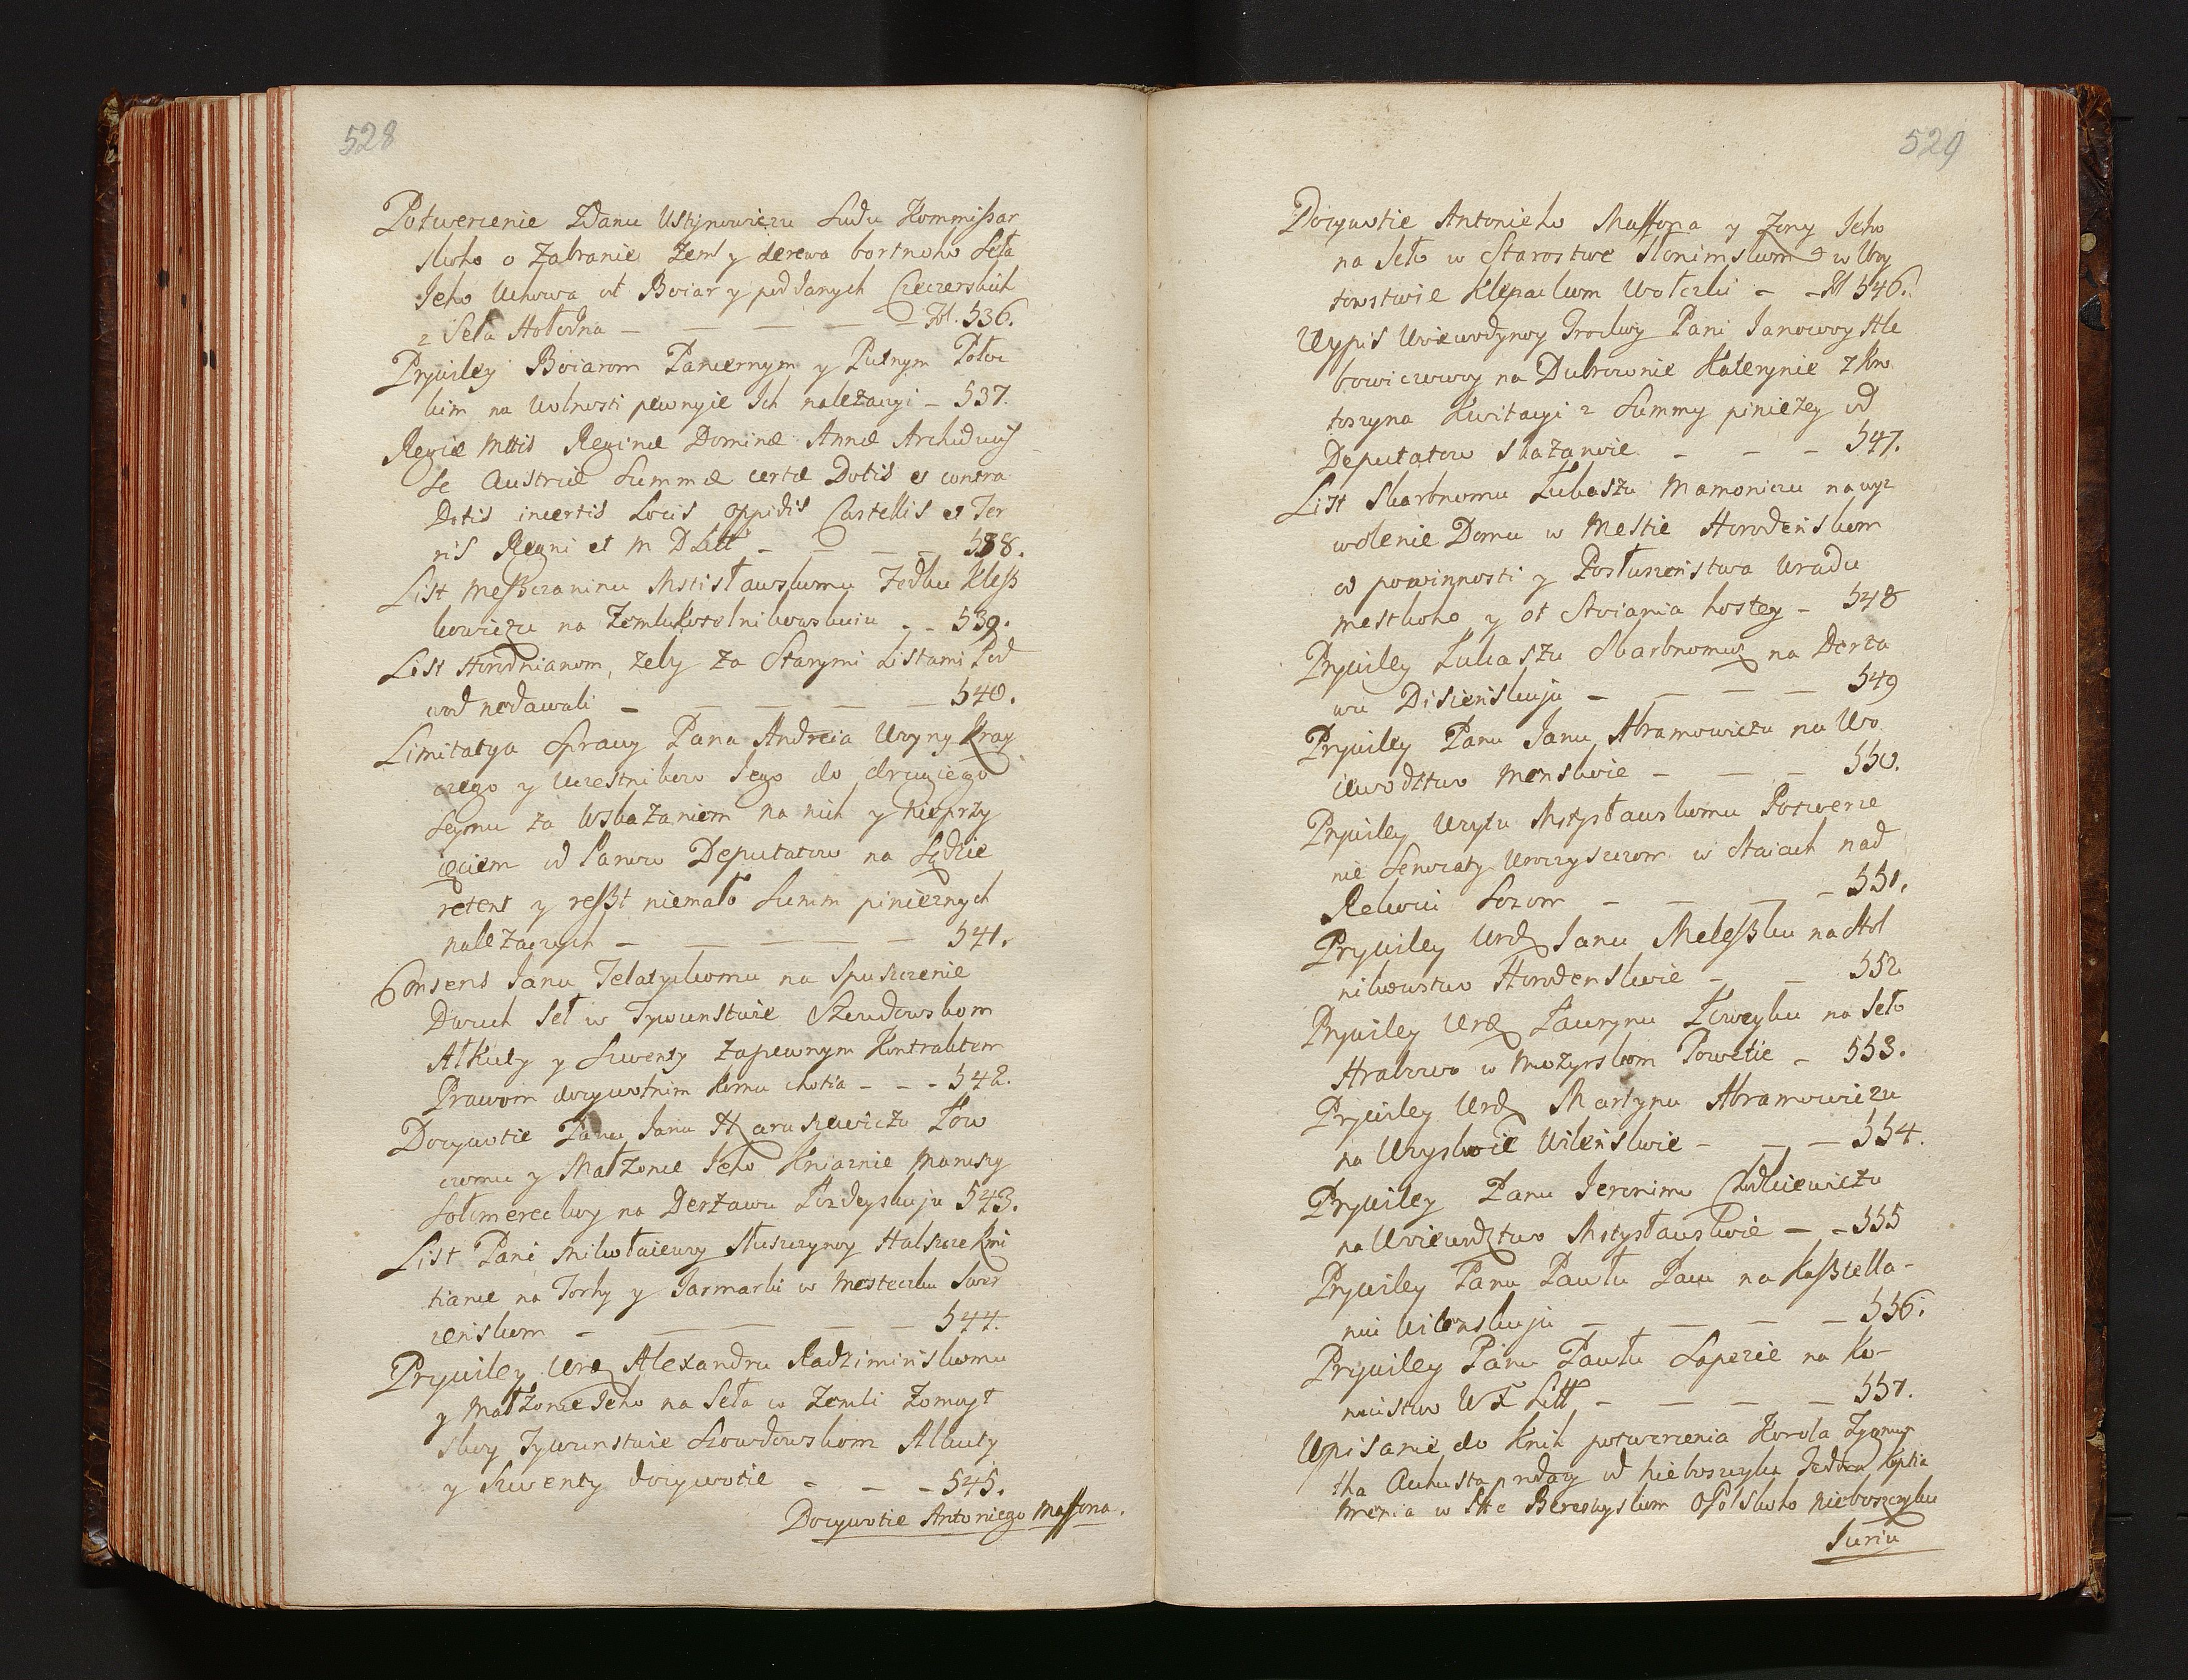 528
Potwerzenie Zdanu Ustynowiczu Sudu Kommißar
skoho o Zabranie Zeml y derewa bortnoho Seła
Jeho Uchowa ot Boiar y poddanych Czeczerskich
z Seła Hołodna — — — — — Fol. 536.
Prywiley Boiarom Pancernym y Putnym Połoc
kim na Wolnosti pewnyie Ich należaczyi — 537.
Regiæ Mttis Reginæ Dominæ Annæ Archiducis
sæ Austriæ Summæ certæ Dotis et contra
Dotis in certis Locis oppidis Castellis et Ter
ris Regni et M D Litt — — — — 538.
List Meßczaninu Mstisławskomu Fedku Kleß
kowiczu na Zemlu Kosolnikowskuiu — — 539.
List Horodnianom, zeby za Starymi Listami Pod
wod nedawali — — — — — 540.
Limitatya Sprawy Pana Andreia Uzyny Kray
czego y Uczestnikow Iego do drugiego
Seymu za Wskazaniem na nich y nieprzy
ięciem od Panow Deputatow na Sądzie
retent y reßzt niemało Summ pinieznych
należaczych — — — — — 541.
Consens Janu Telatyckomu na Spuszczenie
Dwuch Seł w Tywunstwie Szowdowskom
Ałkuty y Suwenty zapewnym Kontraktem
Prawom dozywotnim Komu chotia — — — 542.
Dozywotie Panu Janu Haraszewiczu Łow
czomu y Małzonce Jeho Kniaznie Maruszy
Sołomereckoy na Derżawu Łozdeyskuju 543.
List Pani Mikołaiewoy Słuszczynoy Halszce Kmi
tiance na Torhy y Jarmarki w Mesteczku Swer
zenskom — — — — — 544.
Prywiley Urd Alexandru Radziminskomu
y Małzonce Jeho na Seła w Zemli Zomoyt
skoy Tywunstwie Szowdowskom Alkuty
y Suwenty dozywotie — — — 545.
Dozywotie Antoniego Maffona.
529
Dozywotie Antonieho Maffona y Zony Jeho
na Seło w Starostwe Słonimskom w Woy
towstwie Klepackom Wołczki — — Fol 546.
Wypis Woiewodzynoy Trockoy Pani Janowoy Hle
bowiczowoy na Dubrownie Katerynie z Kro
toszyna Kwitacyi z Summy pinieżey od
Deputatow Skazanoie — — — 547.
List Skarbnomu Łukaszu Mamoniczu na wyz
wolenie Domu w Mestie Horodenskom
od powinnosti y Posłuszenstwa Uradu
mestkoho y ot Stoiania hostey — 548
Prywiley Łukaszu Skarbnomu na Derża
wu Disienskuju — — — — 549
Prywiley Panu Janu Abramowiczu na Wo
iewodztwo Menskoie — — — 550.
Prywiley Uzytu Mstysławskomu Potwerze
nie Senozaty Uroczyszczom w Staiach nad
Rekoiu Sozom — — — — 551.
Prywiley Urd Janu Meleßku na Stol
nikowstwo Horodenskoie — — 552
Prywiley Urd Ławrynu Łoweyku na Seło
Hrabowo w Mozyrskom Powetie — 553.
Prywiley Urd Martynu Abramowiczu
na Woyskoie Wilenskoie — — — 554.
Prywiley Panu Jeronimu Chodkiewiczu
na Woiewodztwo Mstysławskoie — — 555
Prywiley Panu Pawłu Pacu na Kaßztella-
niu Wilenskuju — — — — 556.
Prywiley Panu Pawłu Sapezie na Ko-
niuistwo W X Litt — — — — 557.
Upisanie do Knih potwerzenia Korola Zygmun
tha Auhusta prodazy od nieboszczyka Koptia
Imenia w Pttc Berestyskom OPolskoho nieboszczyku
Juriu